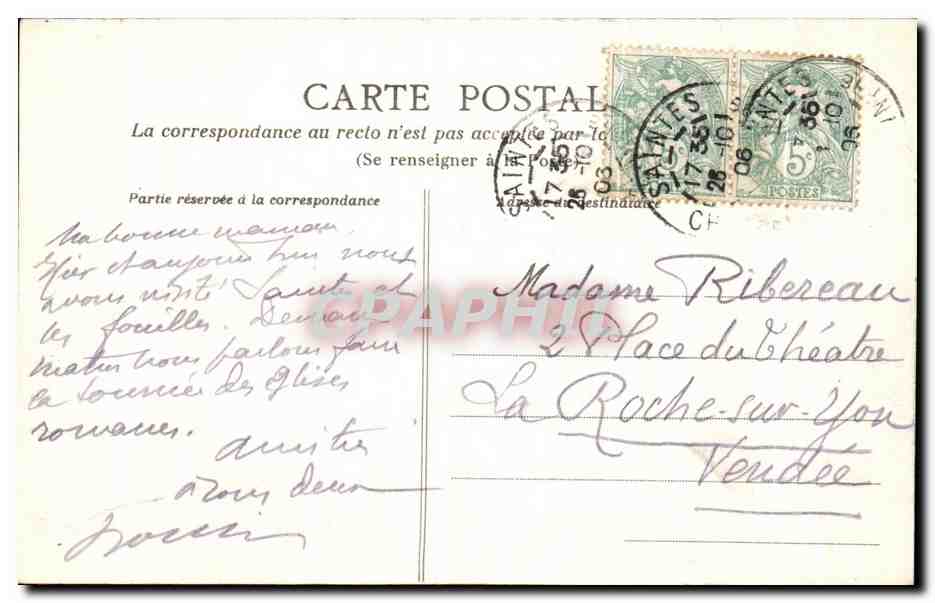 CARTE POSTAL
La correspondance au recto n'est pas acceptée par to
(Se renseigner à la Poste)
Partie réservée à la correspondance
Adresse du destinataire
SAINTES
17 35
26 -10
06
SAINTES
17 35
26 -10
06
CH
5c
POSTES
Ma bonne maman
Hier et aujourd'hui nous
avons visité Saintes et
les fouilles. Demain
matin nous partons faire
la tournée des églises
romanes.
Amitiés
à tous deux
Madame Ribereau
2 Place du Théâtre
La Roche-sur-Yon
Vendée
CPAPHIL